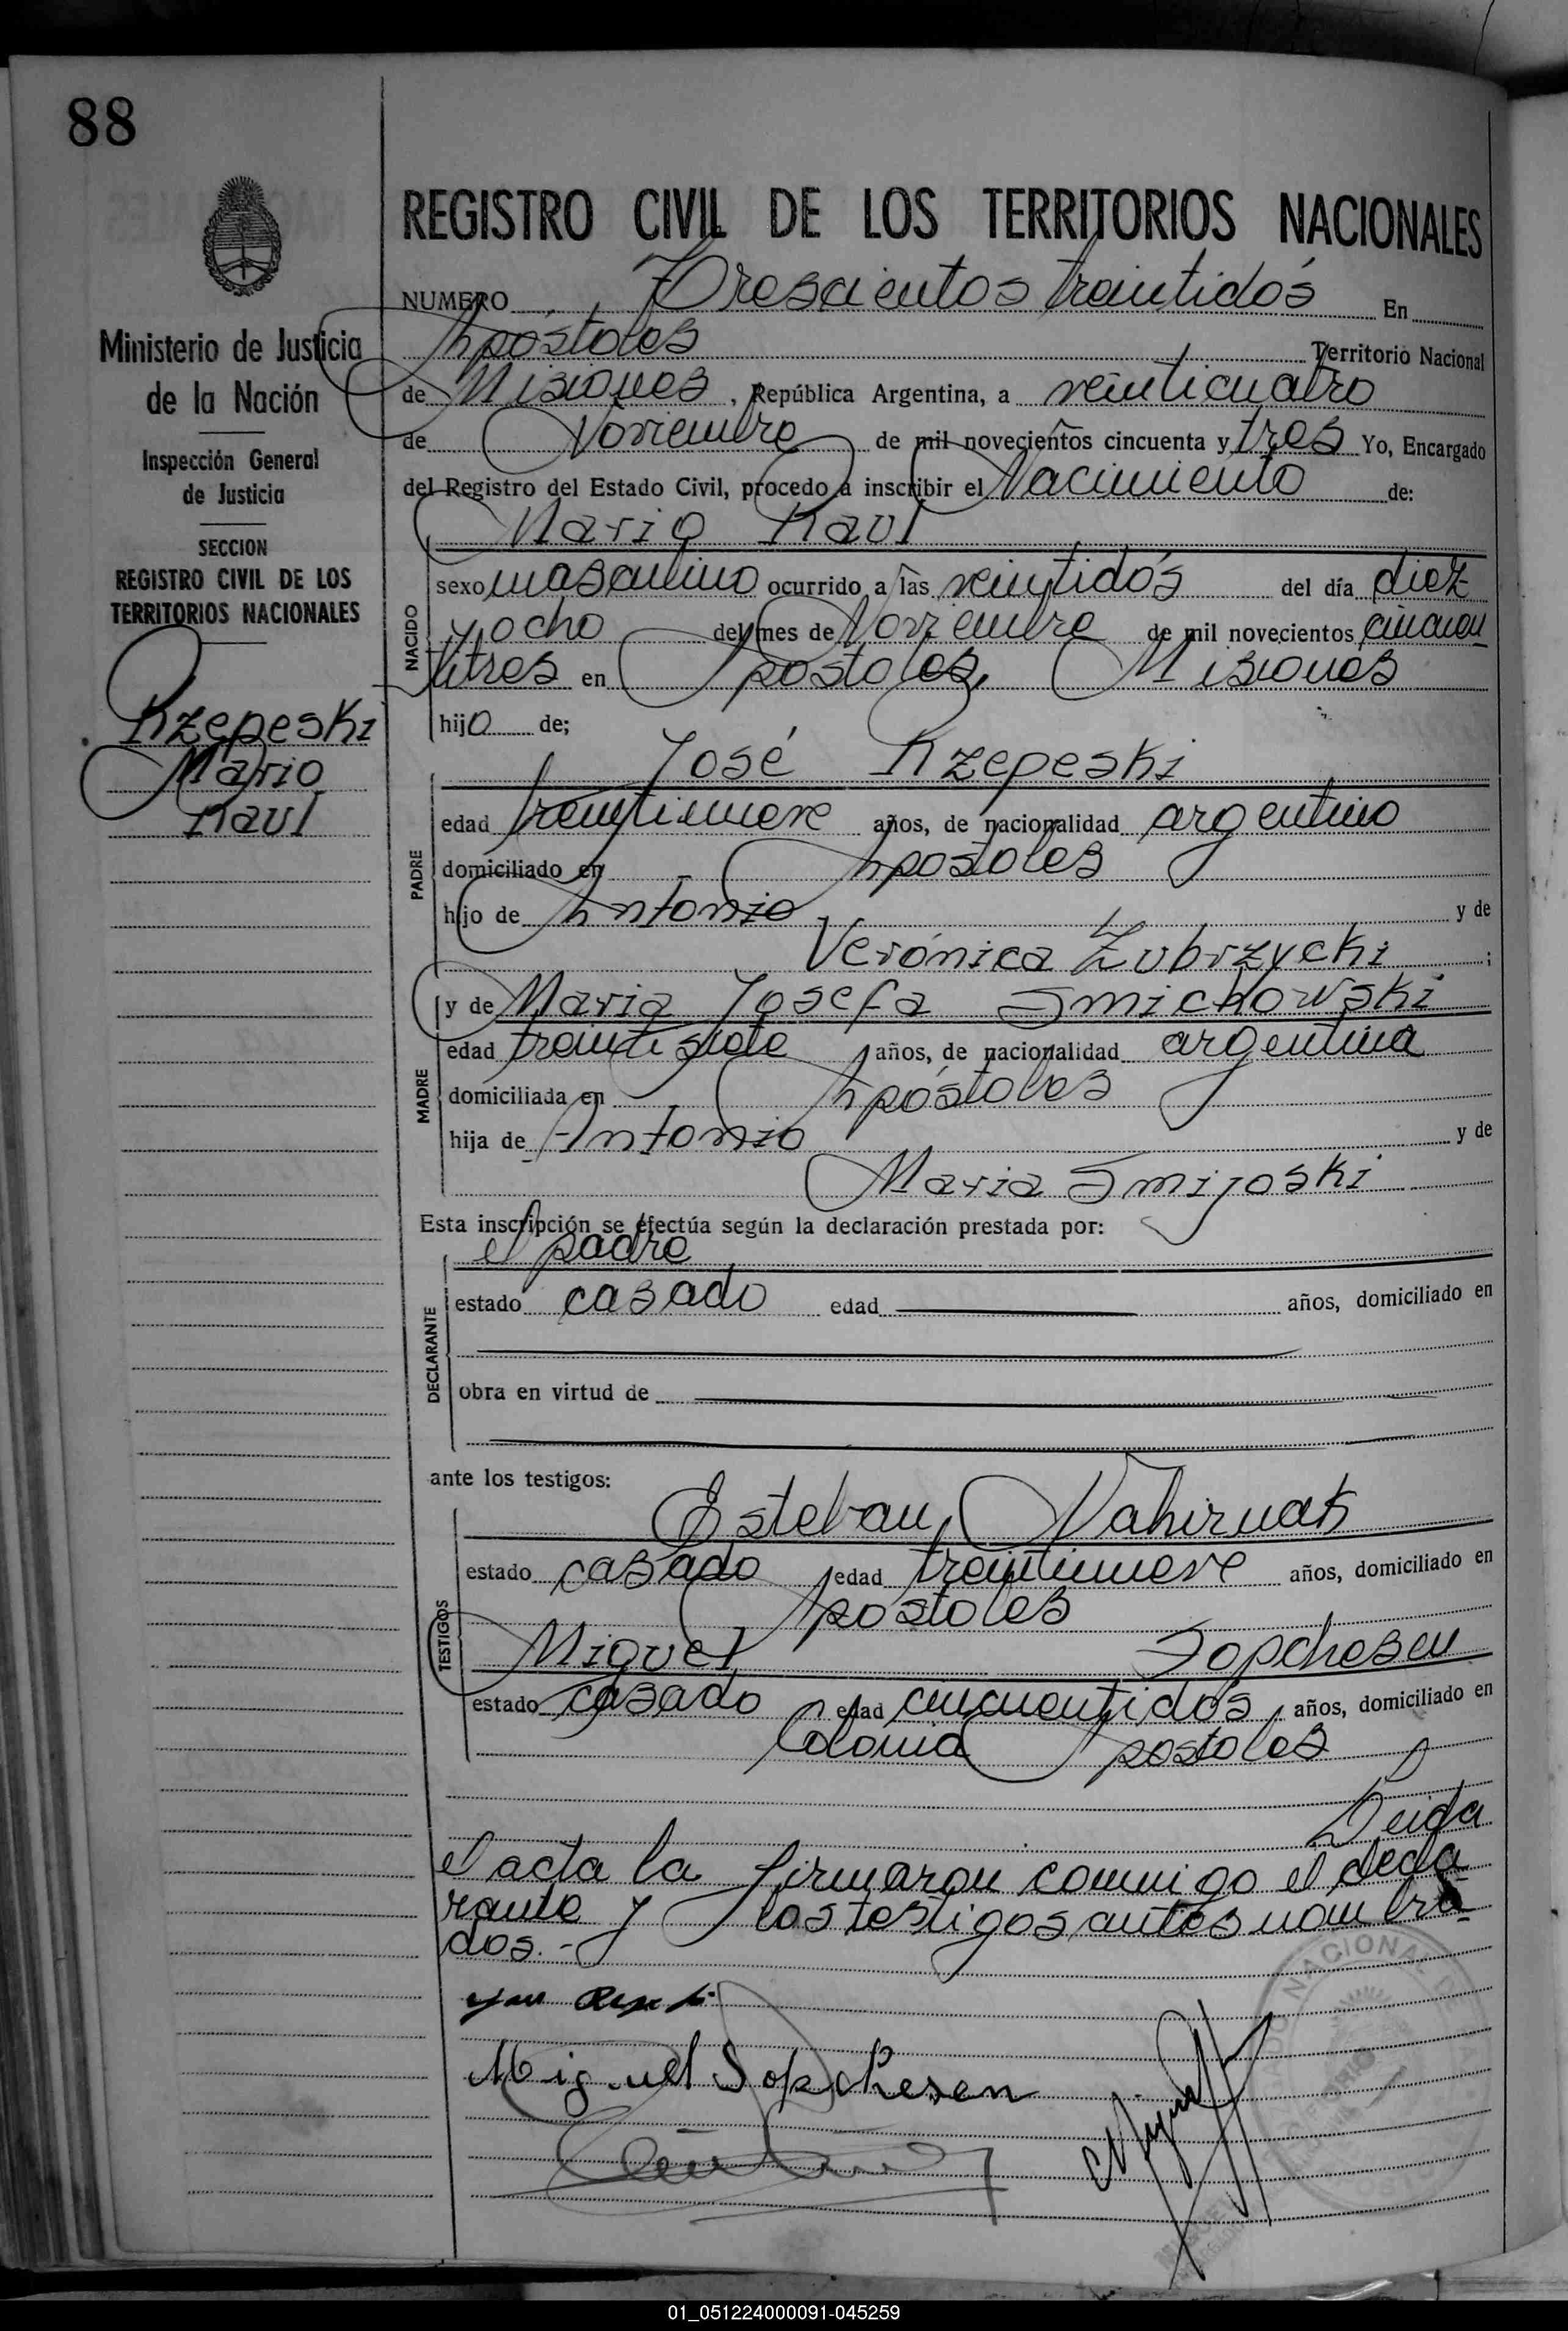 88
REGISTRO CIVIL DE LOS TERRITORIOS NACIONALES
NUMERO Trescientos treintidós En
Apóstoles Territorio Nacional
de Misiones, República Argentina, a veinticuatro
de Noviembre de mil novecientos cincuenta y tres Yo, Encargado
del Registro del Estado Civil, procedo a inscribir el Nacimiento de:
Mario Raul
Ministerio de Justicia
de la Nación
Inspección General
de Justicia
SECCION
REGISTRO CIVIL DE LOS
TERRITORIOS NACIONALES
Rzepeski
Mario
Raul
NACIDO
sexo masculino ocurrido a las veintidós del día diez
y ocho del mes de Noviembre de mil novecientos cincuen
titres en Apostoles, Misiones
hijo de;
José Rzepeski
PADRE
edad treintinueve años, de nacionalidad argentino
domiciliado en Apostoles
hijo de Antonio y de
Verónica Zubrzycki ;
y de Maria Josefa Smichowski
MADRE
edad treintisiete años, de nacionalidad argentina
domiciliada en Apóstoles
hija de Antonio y de
Maria Smijoski
Esta inscripción se efectúa según la declaración prestada por:
el padre
DECLARANTE
estado casado edad años, domiciliado en
obra en virtud de
ante los testigos:
Esteban Nahirnak
TESTIGOS
estado casado edad treintinueve años, domiciliado en
Apostoles
Miguel Sopchesen
estado casado edad cincuentidós años, domiciliado en
Colonia Apostoles
Leida
el acta la firmaron conmigo el decla
rante y los testigos antes nombra
dos.-
Miguel Sopchesen
NACIONAL DE
01_051224000091-045259